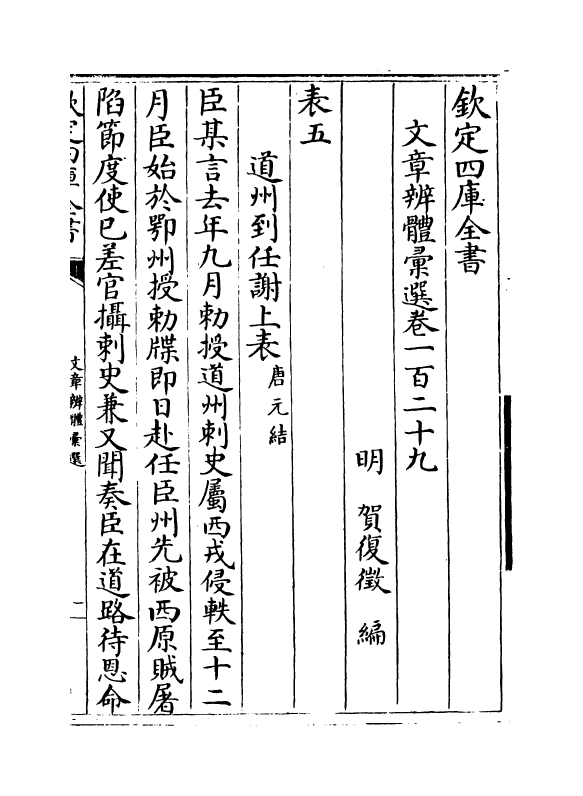 欽定四庫全書
文章辨體彚選卷一百二十九
明 賀復徵 編
表五
道州到任謝上表唐元結
臣某言去年九月勅授道州刺史屬西戎侵軼至十二
月臣始於鄂州授勅牒即日赴任臣州先被西原賊屠
陷節度使已差官攝刺史兼又聞奏臣在道路待恩命
欽定四庫全書
文章辨體彚選